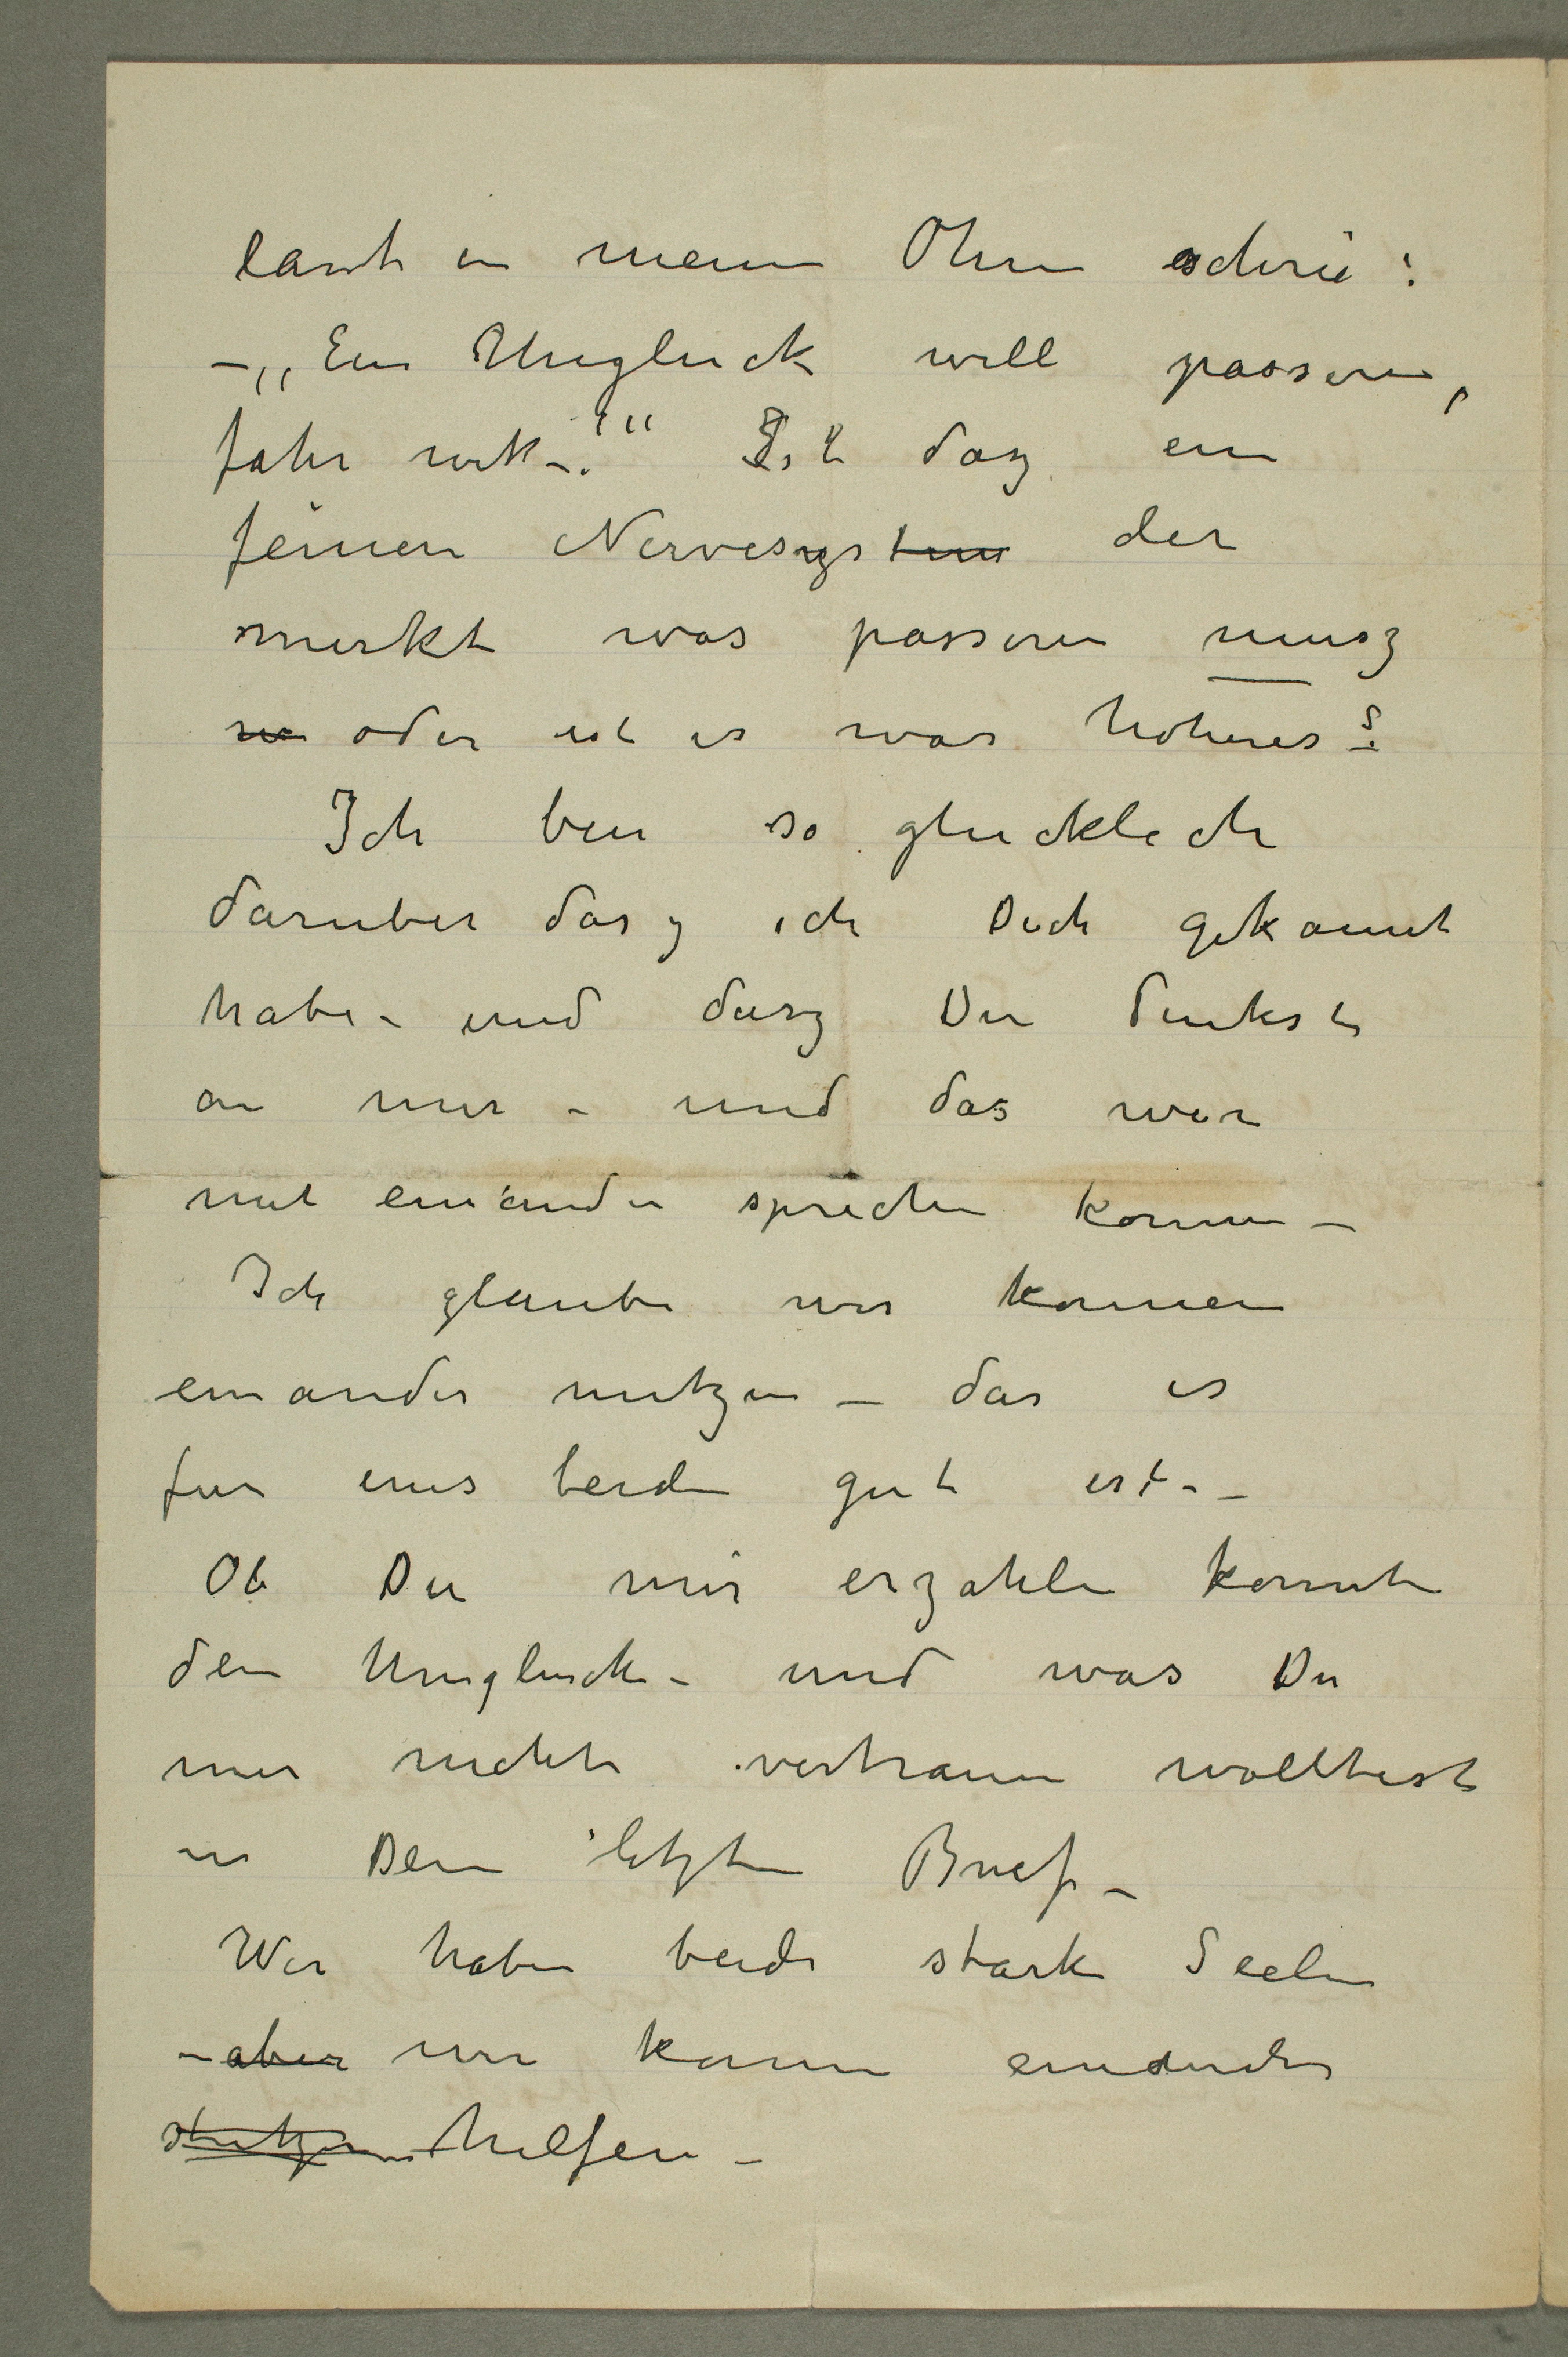 laut in meinen Ohren schrie:
–„Ein Ungluck will passeren,
fahr wek–!“ Ist dasz ein
feinen Nervesystem der
merkt was passeren musz
oder ist es was hoheres?
Ich bin so glucklich
daruber dasz ich Dich gekannt
habe – und dasz Du denkst
an mir – und das wir
mit einander sprechen konnen –
Ich glaube wir konnen
einander nutzen – das es
fur uns beiden gut ist –
Ob Du mir erzahlen konnte
den Ungluck – und was Du
mir nicht vertrauen wolltest
in Dein letzten Brief –
Wir haben beide starke Seelen
– aber wir konnen einander
stutzen helfen –